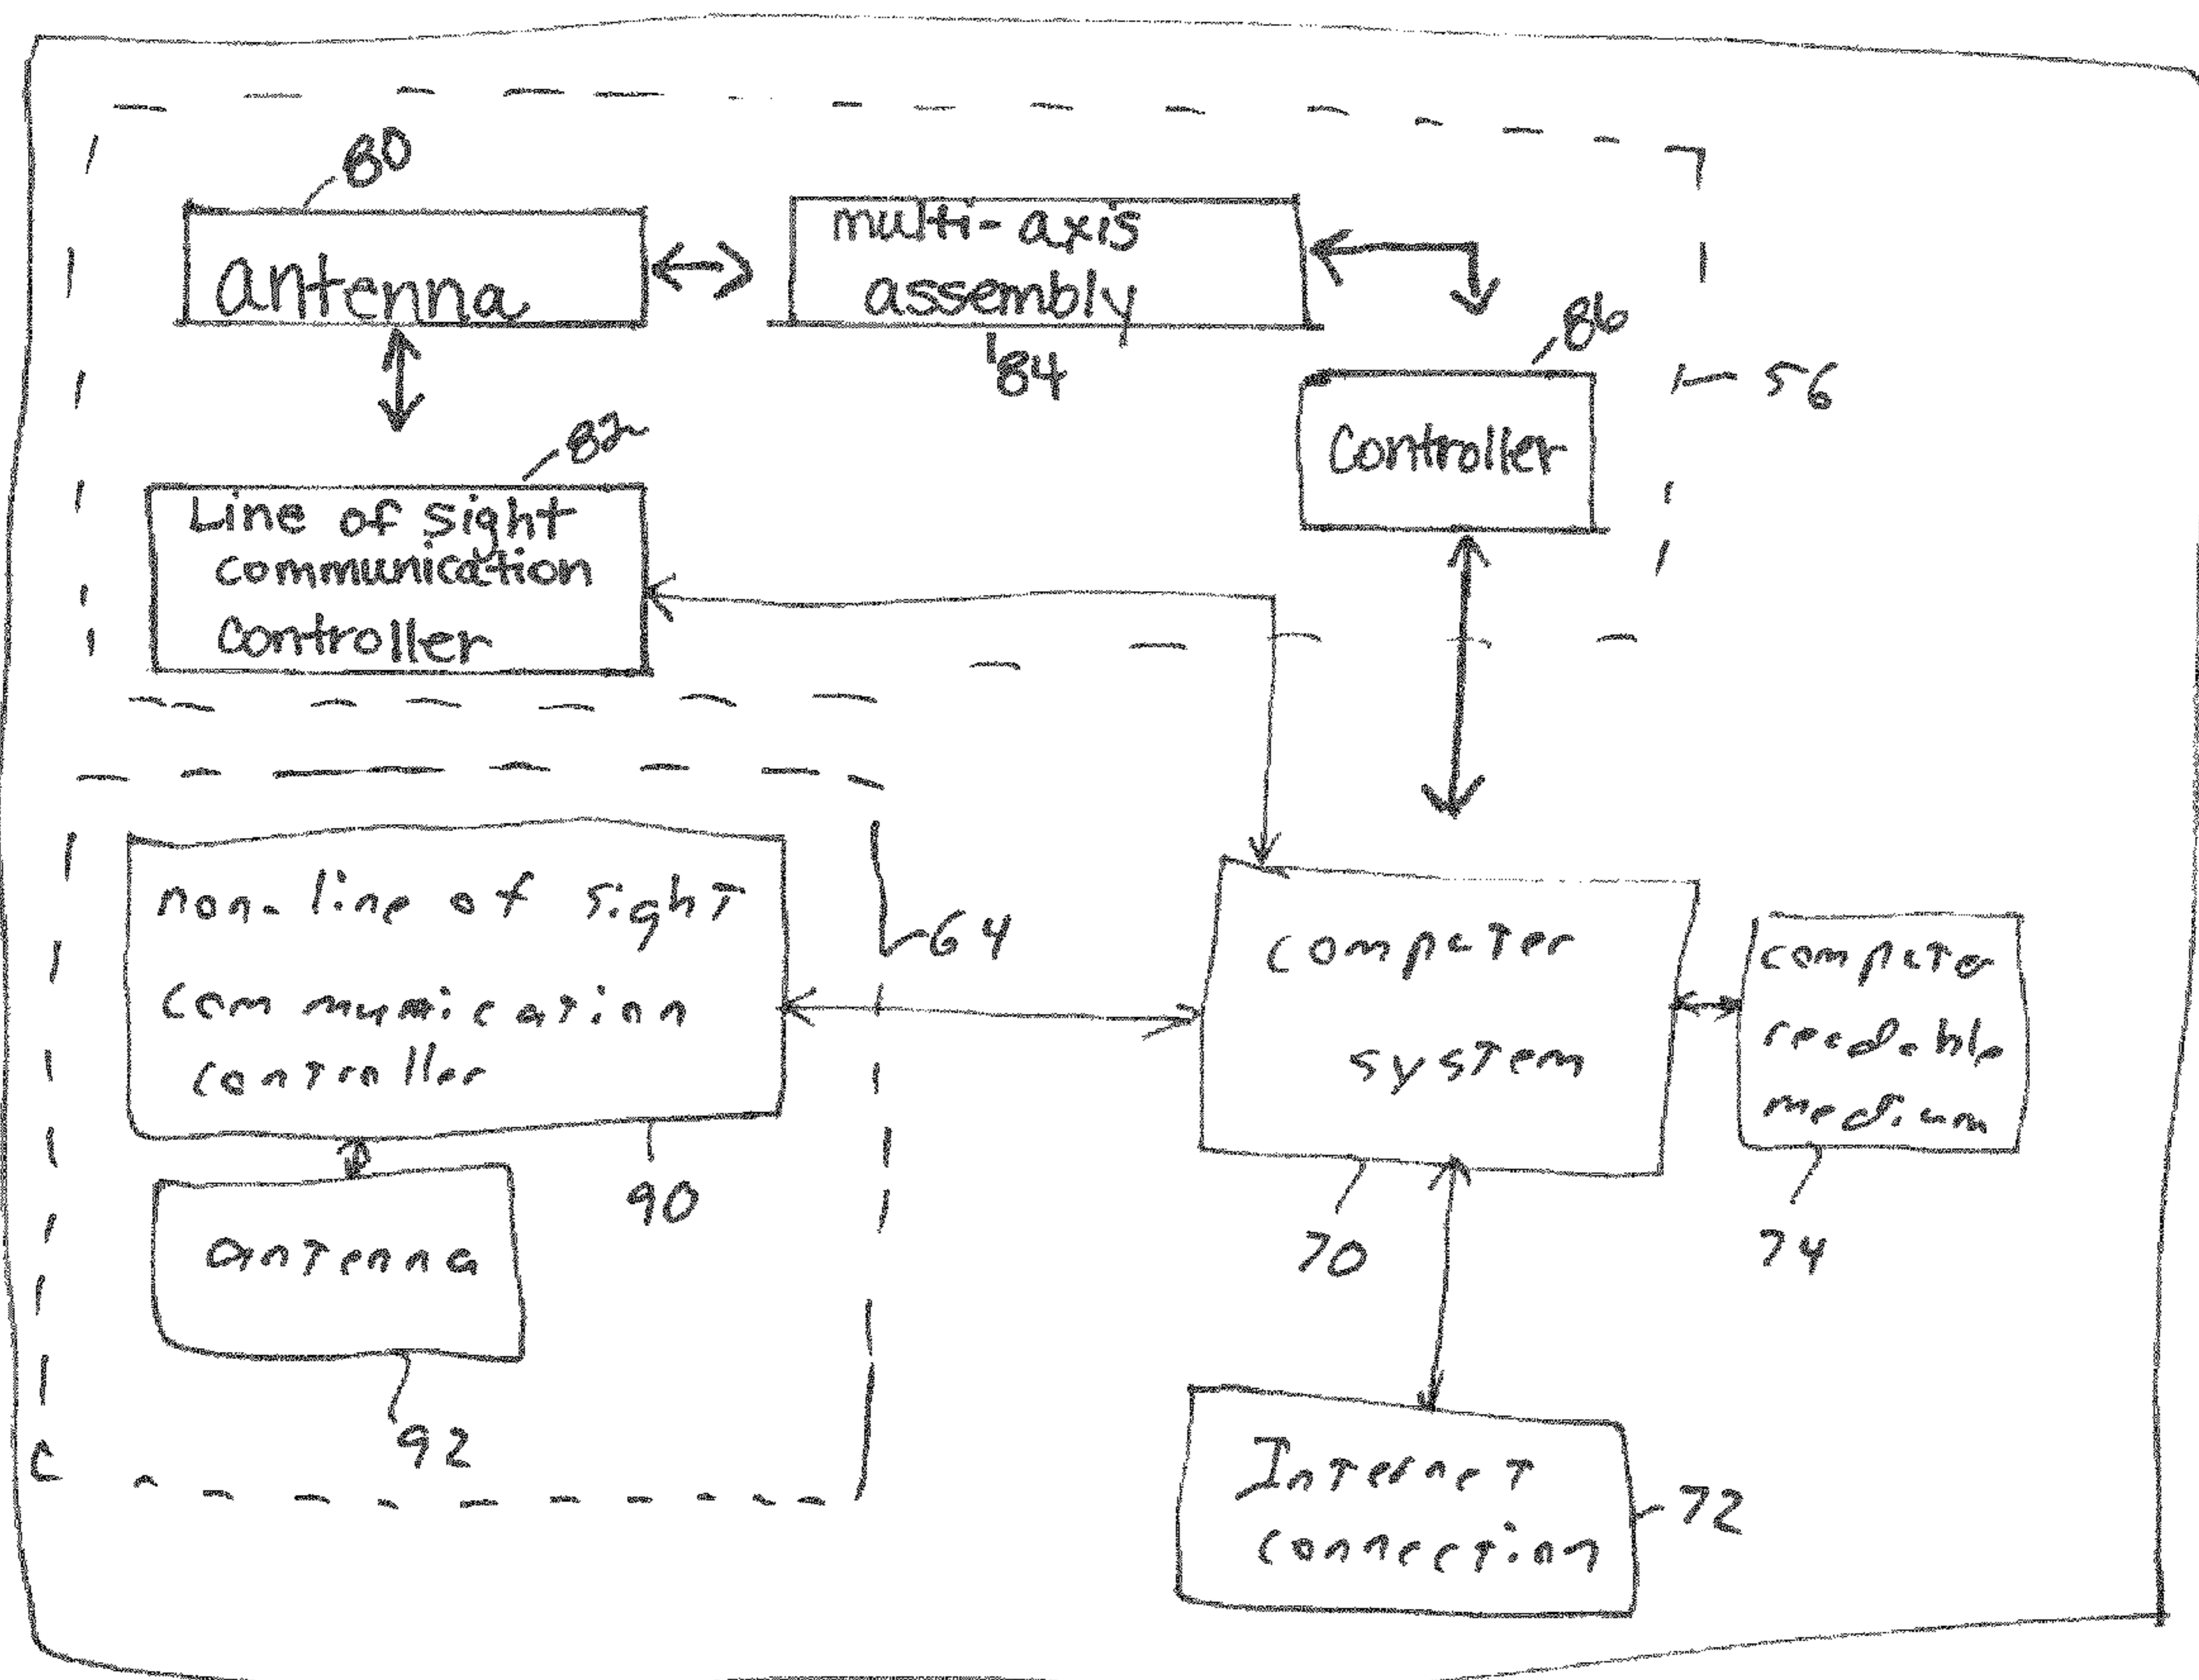 80
antenna
multi-axis
assembly
84
86
Controller
56
82
Line of sight
communication
controller
non-line of sight
communication
controller
64
90
antenna
92
computer
system
70
computer
readable
medium
74
Internet
connection
72